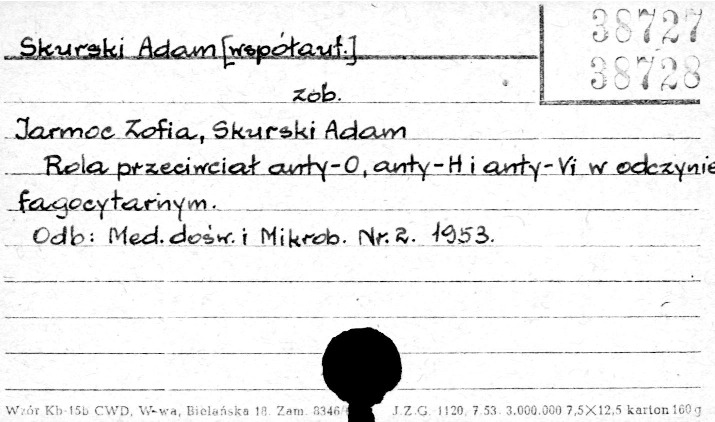 Skurski Adam [współaut.]
38727
38728
zob.
Jarmoc Zofia, Skurski Adam
Rola przeciwciał anty-O, anty-H i anty-Vi w odczynie
fagocytarnym.
Odb: Med. dośw. i Mikrob. Nr. 2. 1953.
Wzór Kb-15b CWD, W-wa, Bielańska 18. Zam. 8346/ J.Z.G. 1120, 7.53. 3.000.000 7,5×12,5 karton 160 g